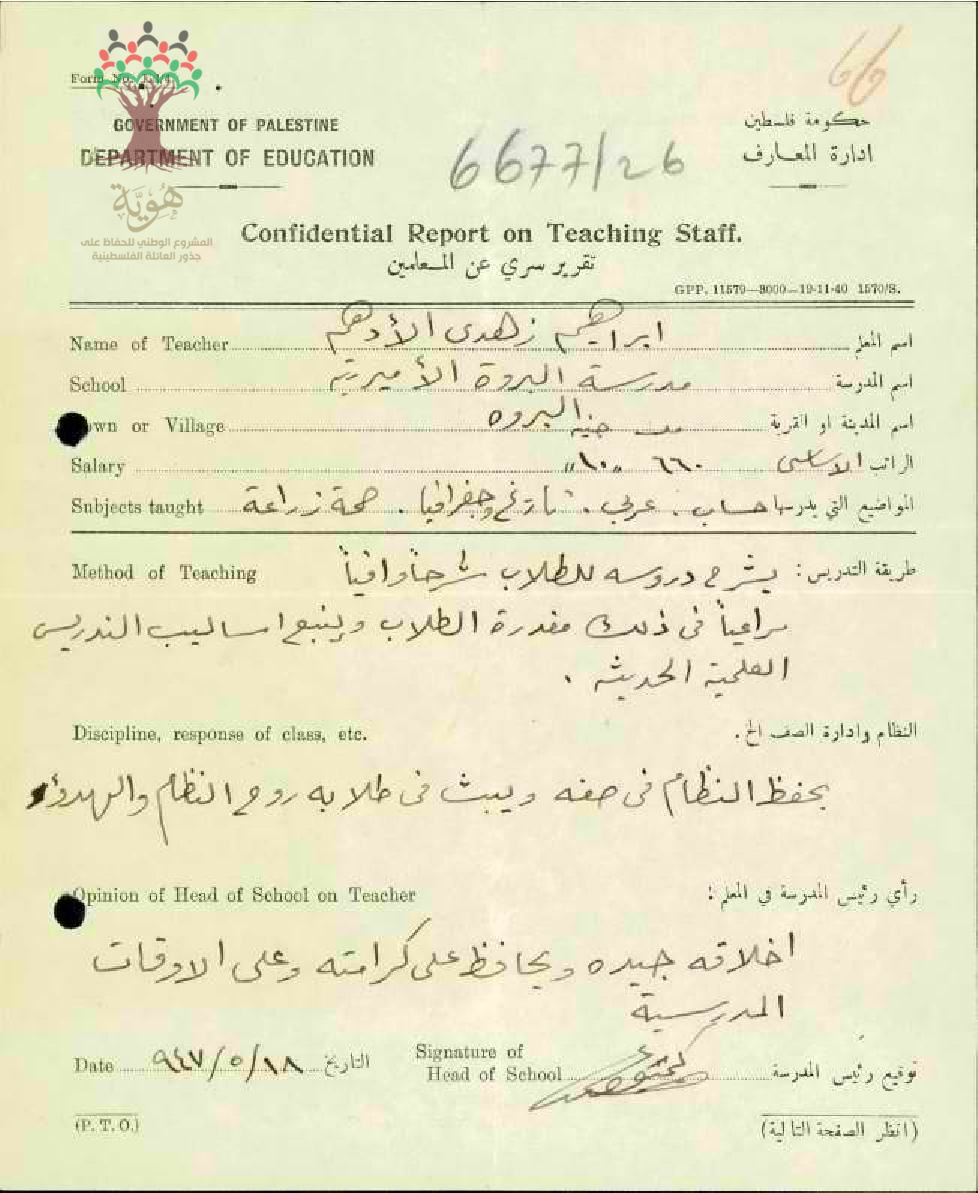 66
Form No. E.14
GOVERNMENT OF PALESTINE
حكومة فلسطين
DEPARTMENT OF EDUCATION
ادارة المعارف
6677/26
هُوِيَّة
المشروع الوطني للحفاظ على
جذور العائلة الفلسطينية
Confidential Report on Teaching Staff.
تقرير سري عن المعلمين
GPP. 11579—3000—19-11-40 1570/S.
Name of Teacher ابراهيم زهدى الأدهم اسم المعلم
School مدرسة البروة الأميرية اسم المدرسة
Town or Village البروه اسم المدينة او القرية
Salary ٦٦٠ الاساسي الراتب
Subjects taught حساب . عربي . تاريخ وجغرافيا . صحة زراعة المواضيع التي يدرسها
Method of Teaching طريقة التدريس : يشرح دروسه للطلاب شرحاً وافياً
مراعياً فى ذلك مقدرة الطلاب ويتبع اساليب التدريس
العلمية الحديثه .
Discipline, response of class, etc. النظام وادارة الصف الخ .
يحفظ النظام فى صفه ويبث فى طلابه روح النظام والهدوء
Opinion of Head of School on Teacher رأي رئيس المدرسة في المعلم :
اخلاقه جيده ويحافظ على كرامته وعلى الاوقات
المدرسية
Date ٩٤٧/٥/١٨ التاريخ Signature of
Head of School توقيع رئيس المدرسة
(P. T. O.) (انظر الصفحة التالية)